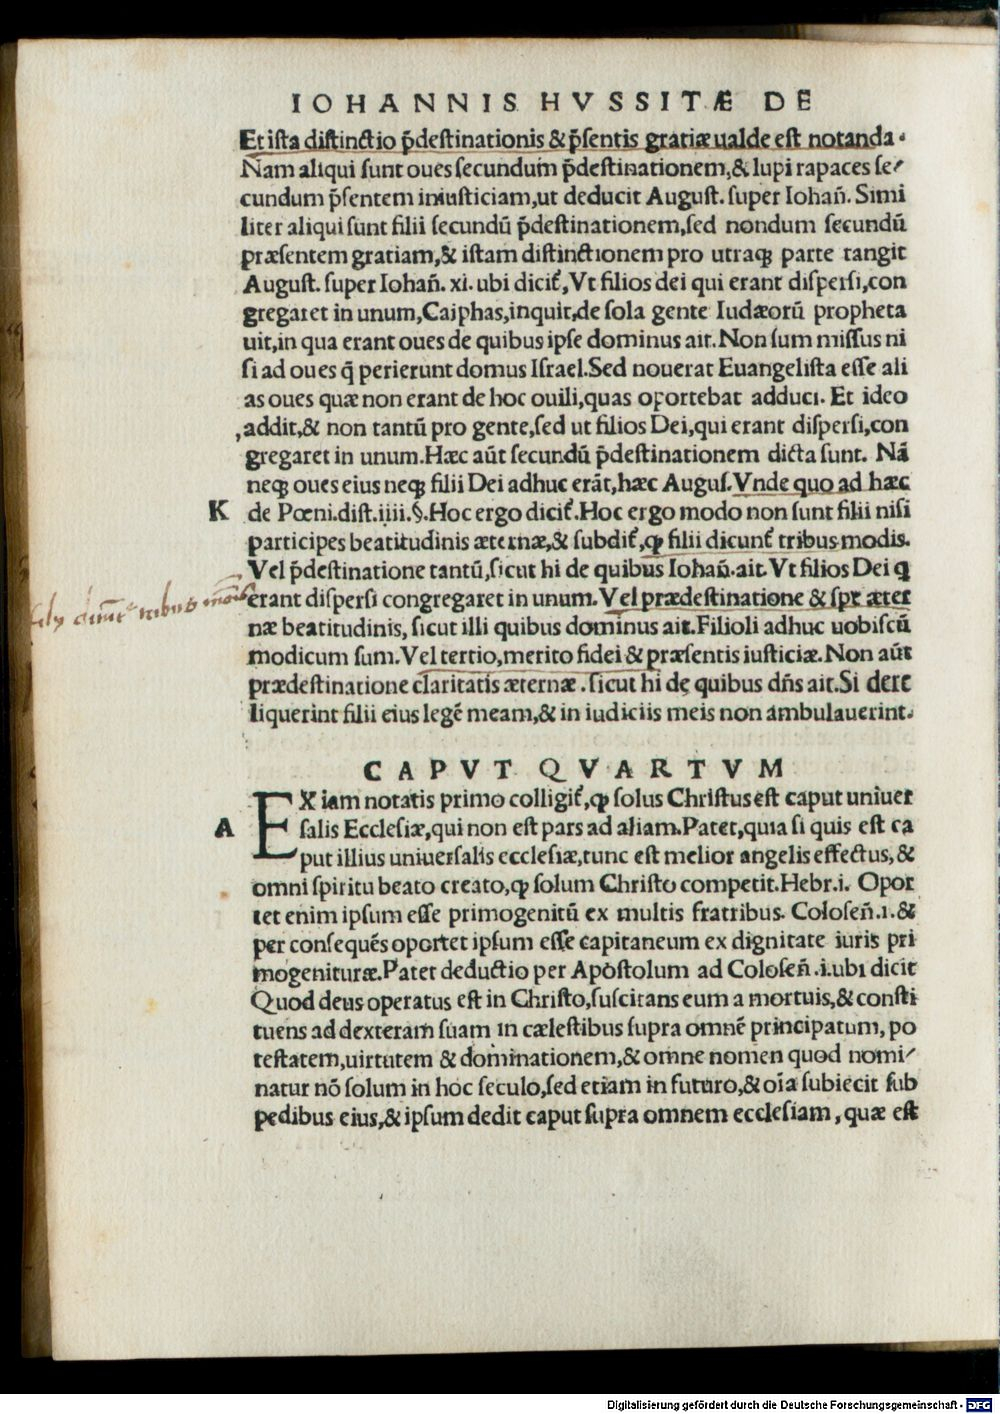 IOHANNIS HVSSITÆ DE
Et ista distinctio p̃destinationis & p̃sentis gratiæ ualde est notanda.
Nam aliqui sunt oues secundum p̃destinationem,& lupi rapaces se/
cundum p̃sentem iniusticiam,ut deducit August. super Iohañ. Simi
liter aliqui sunt filii secundũ p̃destinationem,sed nondum secundũ
præsentem gratiam,& istam distinctionem pro utraqꝫ parte tangit
August. super Iohañ. xi. ubi dicit᷑,Vt filios dei qui erant dispersi,con
gregaret in unum,Caiphas,inquit,de sola gente Iudæorũ propheta
uit,in qua erant oues de quibus ipse dominus ait.Non sum missus ni
si ad oues q̃ perierunt domus Israel.Sed nouerat Euangelista esse ali
as oues quæ non erant de hoc ouili,quas oportebat adduci. Et ideo
,addit,& non tantũ pro gente,sed ut filios Dei,qui erant dispersi,con
gregaret in unum.Hæc aũt secundũ p̃destinationem dicta sunt. Nã
neqꝫ oues eius neqꝫ filii Dei adhuc erãt,hæc Augus.Vnde quo ad hæc
K de Pœni.dist.iiii.§.Hoc ergo dicit᷑.Hoc ergo modo non sunt filii nisi
participes beatitudinis æternæ,& subdit᷑,ꝙ filii dicunt᷑ tribus modis.
Vel p̃destinatione tantũ,sicut hi de quibus Iohañ.ait.Vt filios Dei q
filij dicunt᷑ tribus modis
erant dispersi congregaret in unum.Vel prædestinatione & spe æter
næ beatitudinis, sicut illi quibus dominus ait.Filioli adhuc uobiscũ
modicum sum.Vel tertio,merito fidei & præsentis iusticiæ.Non aũt
prædestinatione claritatis æternæ.sicut hi de quibus dñs ait.Si dere
liquerint filii eius legẽ meam,& in iudiciis meis non ambulauerint.
CAPVT QVARTVM
EX iam notatis primo colligit᷑,ꝙ solus Christus est caput uniuer
A salis Ecclesiæ,qui non est pars ad aliam.Patet,quia si quis est ca
put illius uniuersalis ecclesiæ,tunc est melior angelis effectus,&
omni spiritu beato creato,ꝙ solum Christo competit.Hebr.i. Opor
tet enim ipsum esse primogenitũ ex multis fratribus. Coloseñ.1.&
per consequẽs oportet ipsum esse capitaneum ex dignitate iuris pri
mogenituræ.Patet deductio per Apostolum ad Coloseñ.i.ubi dicit
Quod deus operatus est in Christo,suscitans eum a mortuis,& consti
tuens ad dexteram suam in cælestibus supra omnẽ principatum, po
testatem,uirtutem & dominationem,& omne nomen quod nomi/
natur nõ solum in hoc seculo,sed etiam in futuro,& oĩa subiecit sub
pedibus eius,& ipsum dedit caput supra omnem ecclesiam, quæ est
Digitalisierung gefördert durch die Deutsche Forschungsgemeinschaft - DFG